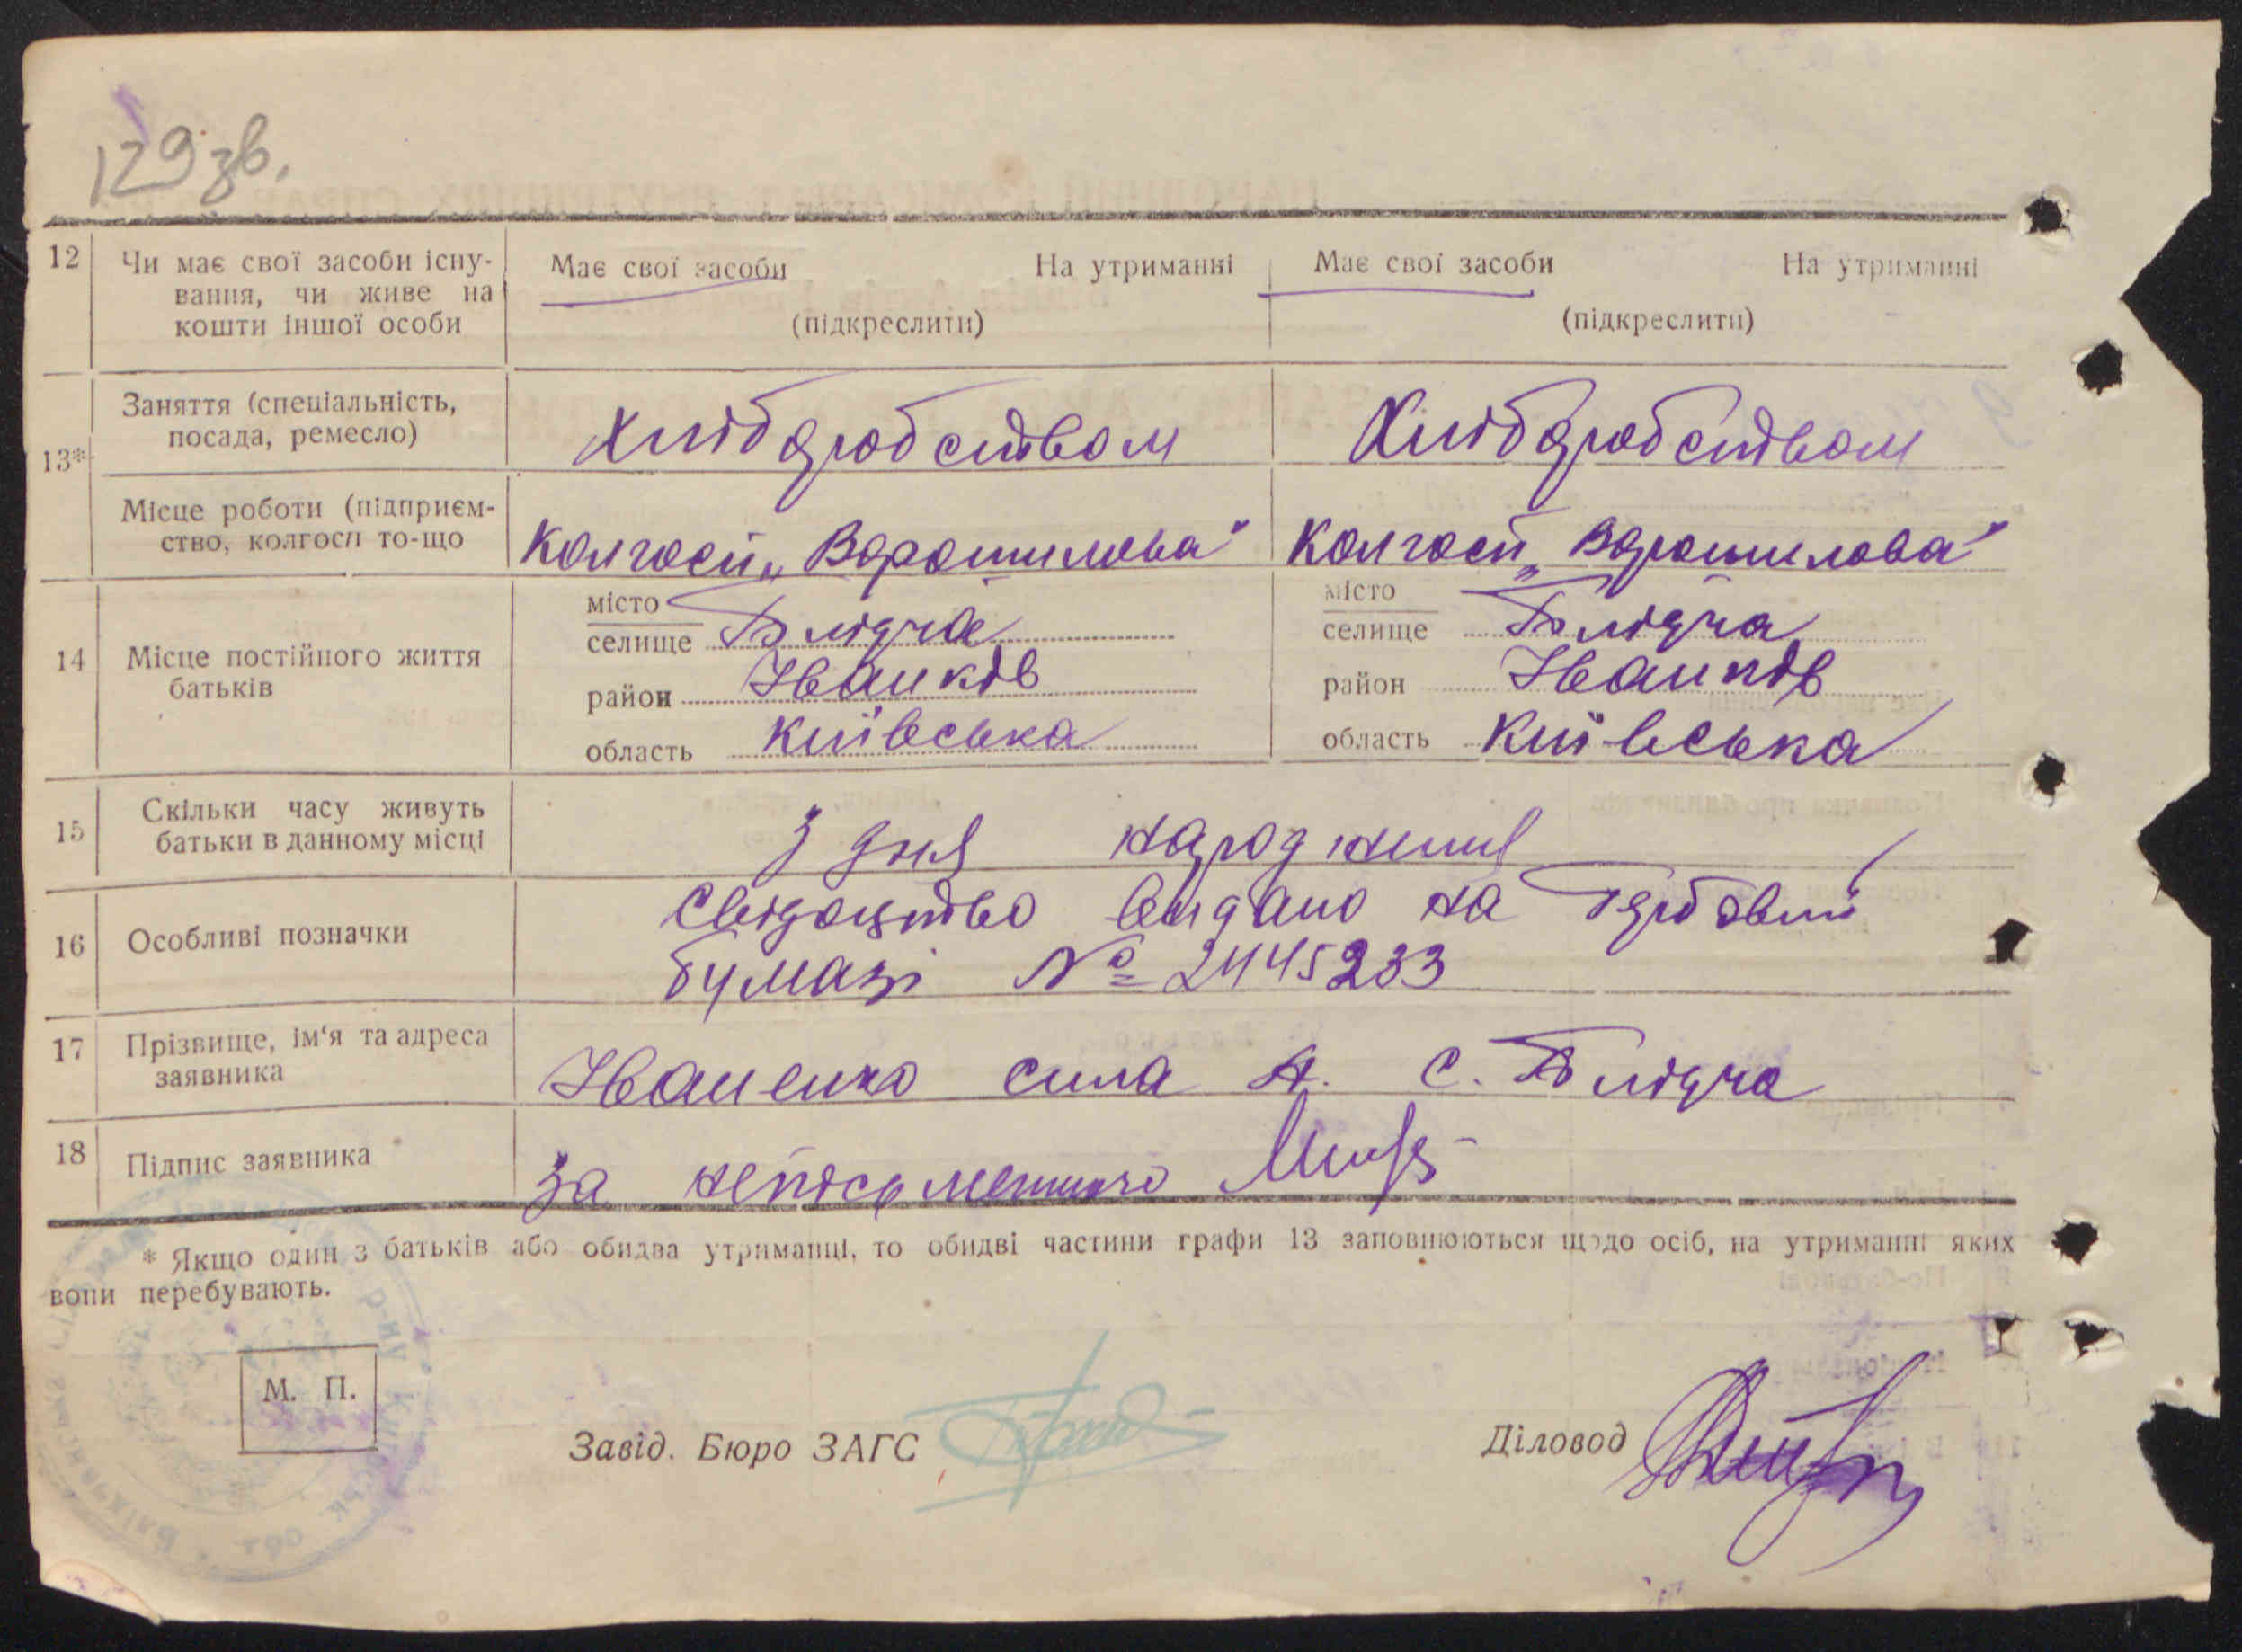 129 зв.
12 Чи має свої засоби існу- Має свої засоби На утриманні Має свої засоби На утриманні
вання, чи живе на
кошти іншої особи (підкреслити) (підкреслити)
13* Заняття (спеціальність,
посада, ремесло) Хлібороб ством Хлібороб ством
Місце роботи (підприєм-
ство, колгосп то-що Колгосп „Ворошилова" Колгосп „Ворошилова"
14 Місце постійного життя
батьків
місто
селище Блідча
район Іванків
область Київська
місто
селище Блідча
район Іванків
область Київська
15 Скільки часу живуть
батьки в данному місці З дня народження
16 Особливі позначки Свідоцтво видано на Гербовий
бумазі № 2445233
17 Прізвище, ім'я та адреса
заявника Іваненко Сила А. С. Блідча
18 Підпис заявника За неписьменного
* Якщо один з батьків або обидва утриманці, то обидві частини графи 13 заповнюються щодо осіб, на утриманні яких
вони перебувають.
М. П.
Завід. Бюро ЗАГС
Діловод